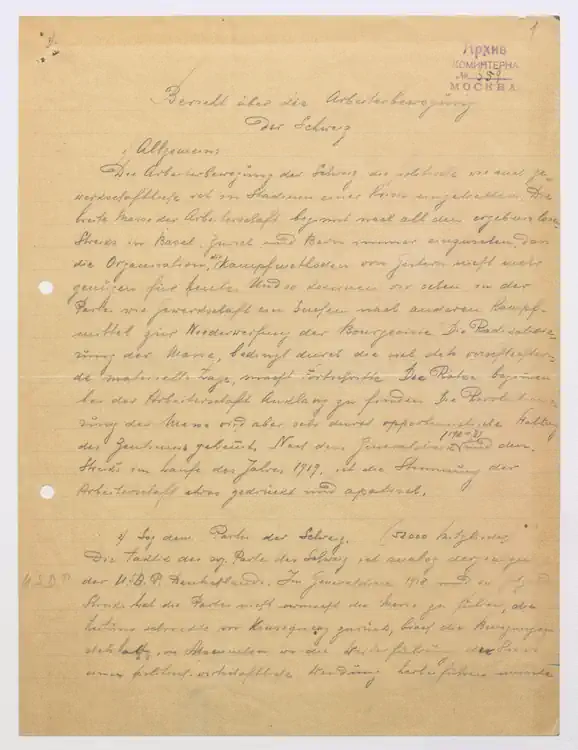 Архив
КОМИНТЕРНА
№ 359
МОСКВА
Bericht über die Arbeiterbewegung
Der Schweiz
Allgemein:
Die Arbeiterbewegung der Schweiz die politische wie auch ge-
werkschaftliche ist im Stadium einer Krise eingetreten. Die
breite Masse der Arbeiterschaft beginnt nach all den ergebnislosen
Streiks in Basel, Zürich und Bern immer einzusehen, dass
die Organisation, Kampfmethoden von gestern nicht mehr
genügen für heute. Und so kommen wir sehen in der
Partei wie gewerkschaft ein Suchen nach anderen Kampf-
mittel zur Niederwerfung der Bourgeoisie. Die Radikalisie-
rung der Masse, bedingt durch die sich stets
de materielle Lage, macht Fortschritte. Die Räte beginnen
bei der Arbeiterschaft Anklang zu finden. Die Revolutionie-
rung der Masse wird aber stets durch opportunistische Haltung
des Zentrums gehemmt. Nach dem Generalstreik (1918) und den
Streiks im Laufe des Jahres 1919, ist die Stimmung der
Arbeiterschaft etwas gedrückt und apatisch.
Soz. dem. Partei der Schweiz. (52000 Mitglieder)
Die Taktik der soz. Partei der Schweiz ist analog derjenigen
U.S.D.P. der U.S.P. Deutschlands. Im Generalstreik 1918 und in
Streiks hat die Partei nicht vermocht die Masse zu führen, die
vor Konsequenz zurück, die Bewegungen
stets im Momenten wo die Weiterführung des Streiks
einen politisch-wirtschaftliche Wendung herbeiführen konnte